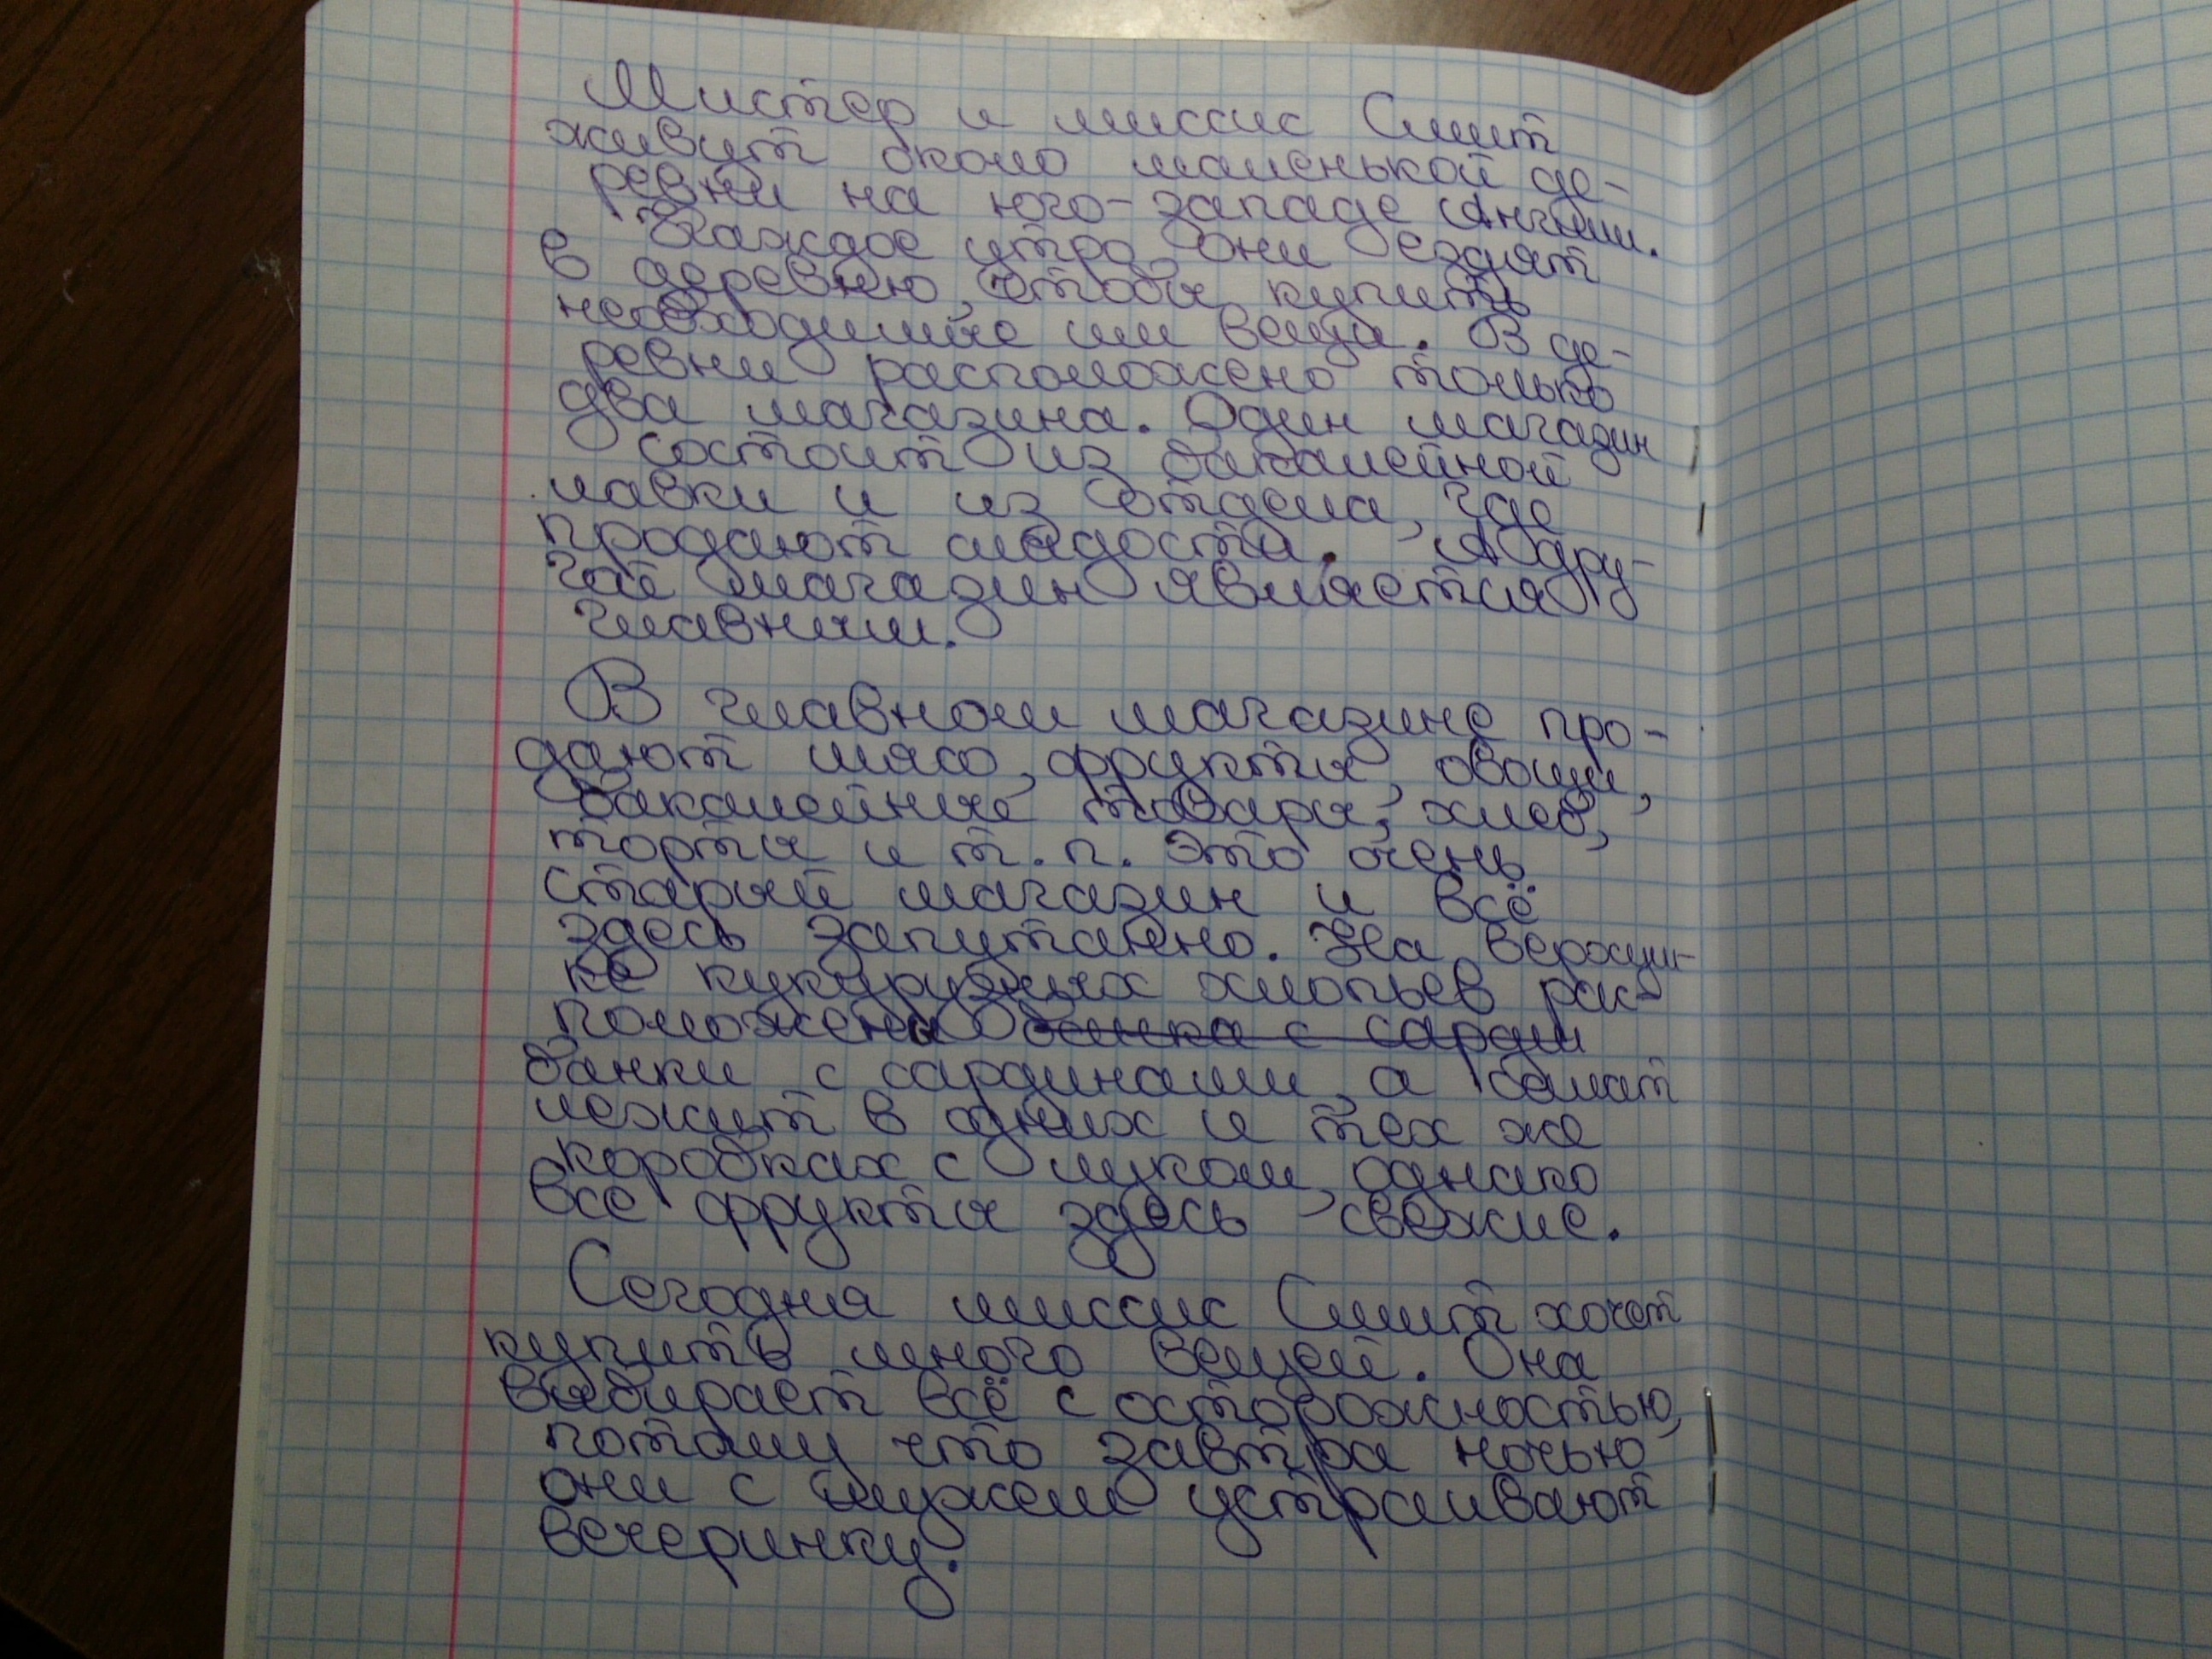 Мистер и миссис Смит
живут около маленькой де-
ревни на юго-западе Англии.
Каждое утро они ездят
в деревню, чтобы купить
необходимые им вещи. В де-
ревни расположено только
два магазина. Один магазин
состоит из бакалейной
лавки и из отдела, где
продают сладости. А дру-
гой магазин является
главным.
В главном магазине про-
дают мясо, фрукты, овощи,
бакалейные товары, хлеб,
торты и т.п. Это очень
старый магазин и всё
здесь запутанно. На верхуш-
ке кукурузных хлопьев рас-
положены банка с сардин
банки с сардинами, а салат
лежит в одних и тех же
коробках с луком, однако
все фрукты здесь свежие.
Сегодня миссис Смит хочет
купить много вещей. Она
выбирает всё с осторожностью,
потому что завтра ночью
они с мужем устраивают
вечеринку.